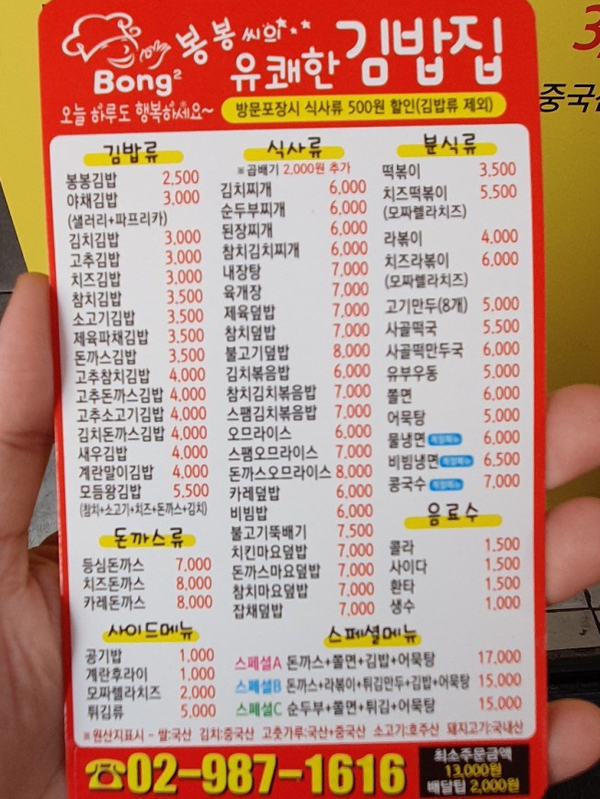 봉봉씨의 유쾌한 김밥집
Bong²
오늘 하루도 행복하세요~
방문포장시 식사류 500원 할인(김밥류 제외)
김밥류
봉봉김밥 2,500
야채김밥 3,000
(샐러리+파프리카)
김치김밥 3,000
고추김밥 3,000
치즈김밥 3,000
참치김밥 3,500
소고기김밥 3,500
제육파채김밥 3,500
돈까스김밥 3,500
고추참치김밥 4,000
고추돈까스김밥 4,000
고추소고기김밥 4,000
김치돈까스김밥 4,000
새우김밥 4,000
계란말이김밥 4,000
모듬왕김밥 5,500
(참치+소고기+치즈+돈까스+김치)
돈까스류
등심돈까스 7,000
치즈돈까스 8,000
카레돈까스 8,000
사이드메뉴
공기밥 1,000
계란후라이 1,000
모짜렐라치즈 2,000
튀김류 5,000
식사류
※곱배기 2,000원 추가
김치찌개 6,000
순두부찌개 6,000
된장찌개 6,000
참치김치찌개 6,000
내장탕 7,000
육개장 7,000
제육덮밥 7,000
참치덮밥 7,000
불고기덮밥 8,000
김치볶음밥 6,000
참치김치볶음밥 7,000
스팸김치볶음밥 7,000
오므라이스 6,000
스팸오므라이스 7,000
돈까스오므라이스 8,000
카레덮밥 6,000
비빔밥 6,000
불고기뚝배기 7,500
치킨마요덮밥 7,000
돈까스마요덮밥 7,000
참치마요덮밥 7,000
잡채덮밥 7,000
분식류
떡볶이 3,500
치즈떡볶이 5,500
(모짜렐라치즈)
라볶이 4,000
치즈라볶이 6,000
(모짜렐라치즈)
고기만두(8개) 5,000
사골떡국 5,500
사골떡만두국 6,000
유부우동 5,000
쫄면 6,000
어묵탕 5,000
물냉면 계절메뉴 6,000
비빔냉면 계절메뉴 6,500
콩국수 계절메뉴 7,000
음료수
콜라 1,500
사이다 1,500
환타 1,500
생수 1,000
스페셜메뉴
스페셜A 돈까스+쫄면+김밥+어묵탕 17,000
스페셜B 돈까스+라볶이+튀김만두+김밥+어묵탕 15,000
스페셜C 순두부+쫄면+튀김+어묵탕 15,000
※원산지표시 - 쌀:국산 김치:중국산 고춧가루:국산+중국산 소고기:호주산 돼지고기:국내산
☎02-987-1616
최소주문금액
13,000원
배달팁 2,000원
3,
중국산